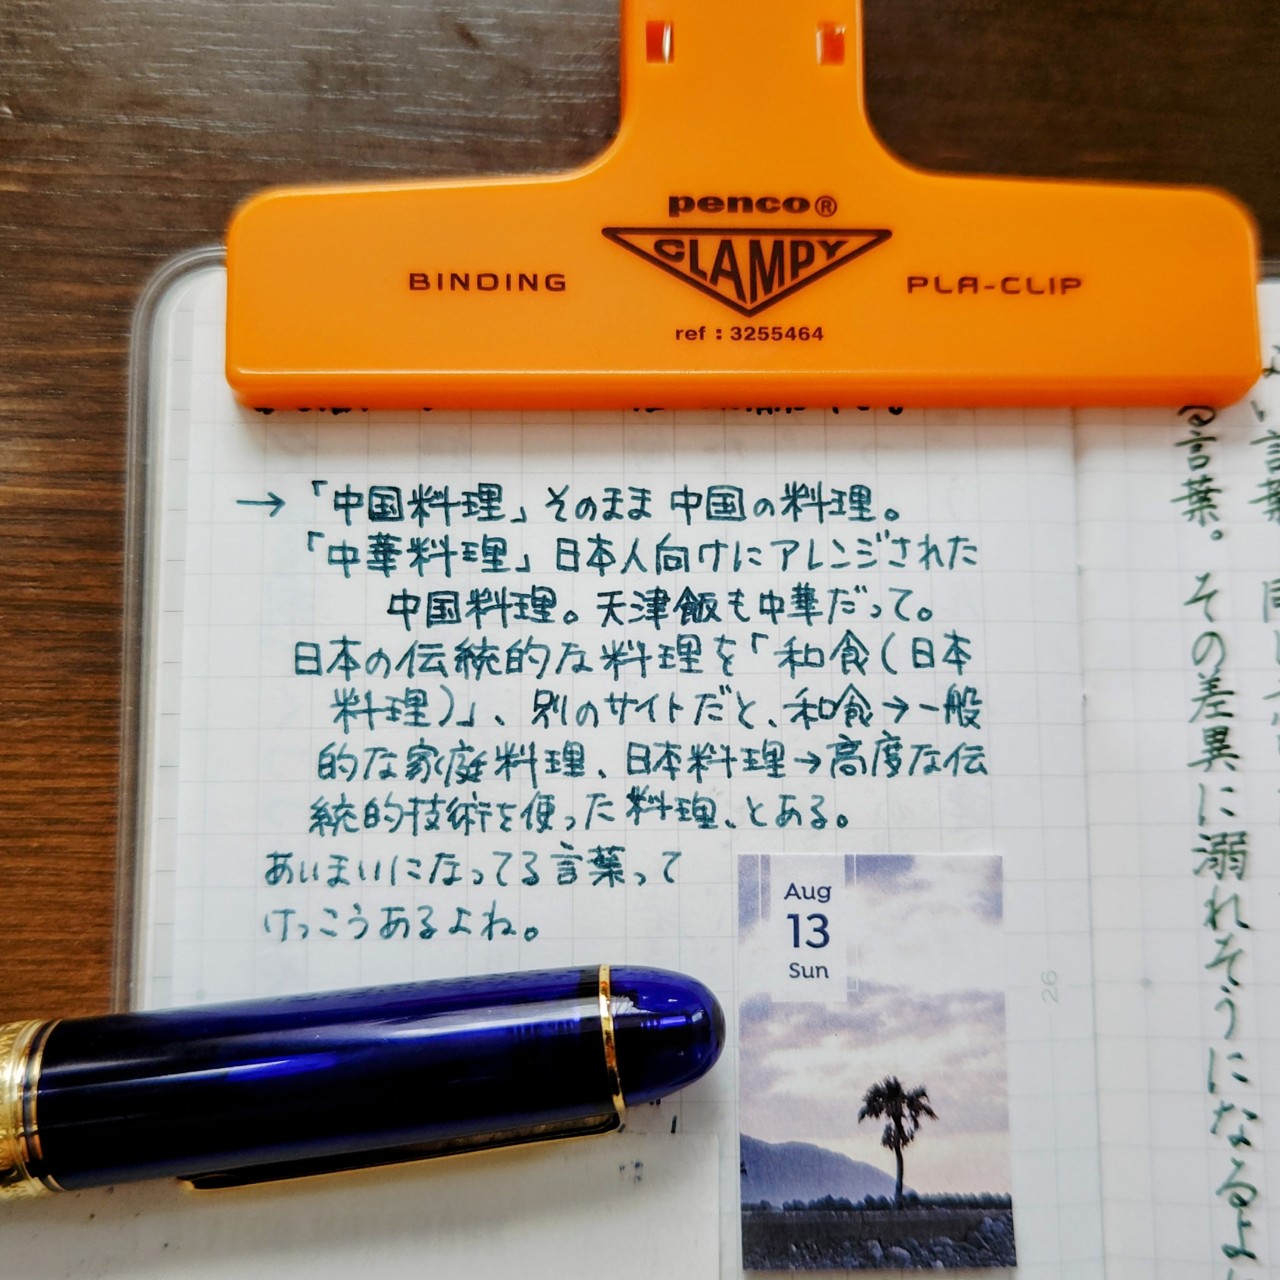 penco®
CLAMPY
BINDING
PLA-CLIP
ref : 3255464
→「中国料理」そのまま中国の料理。
「中華料理」日本人向けにアレンジされた
中国料理。天津飯も中華だって。
日本の伝統的な料理を「和食(日本
料理)」、別のサイトだと、和食→一般
的な家庭料理、日本料理→高度な伝
統的技術を使った料理、とある。
あいまいになってる言葉って
けっこうあるよね。
Aug
13
Sun
26
る言葉。その差異に溺れそうになるよ